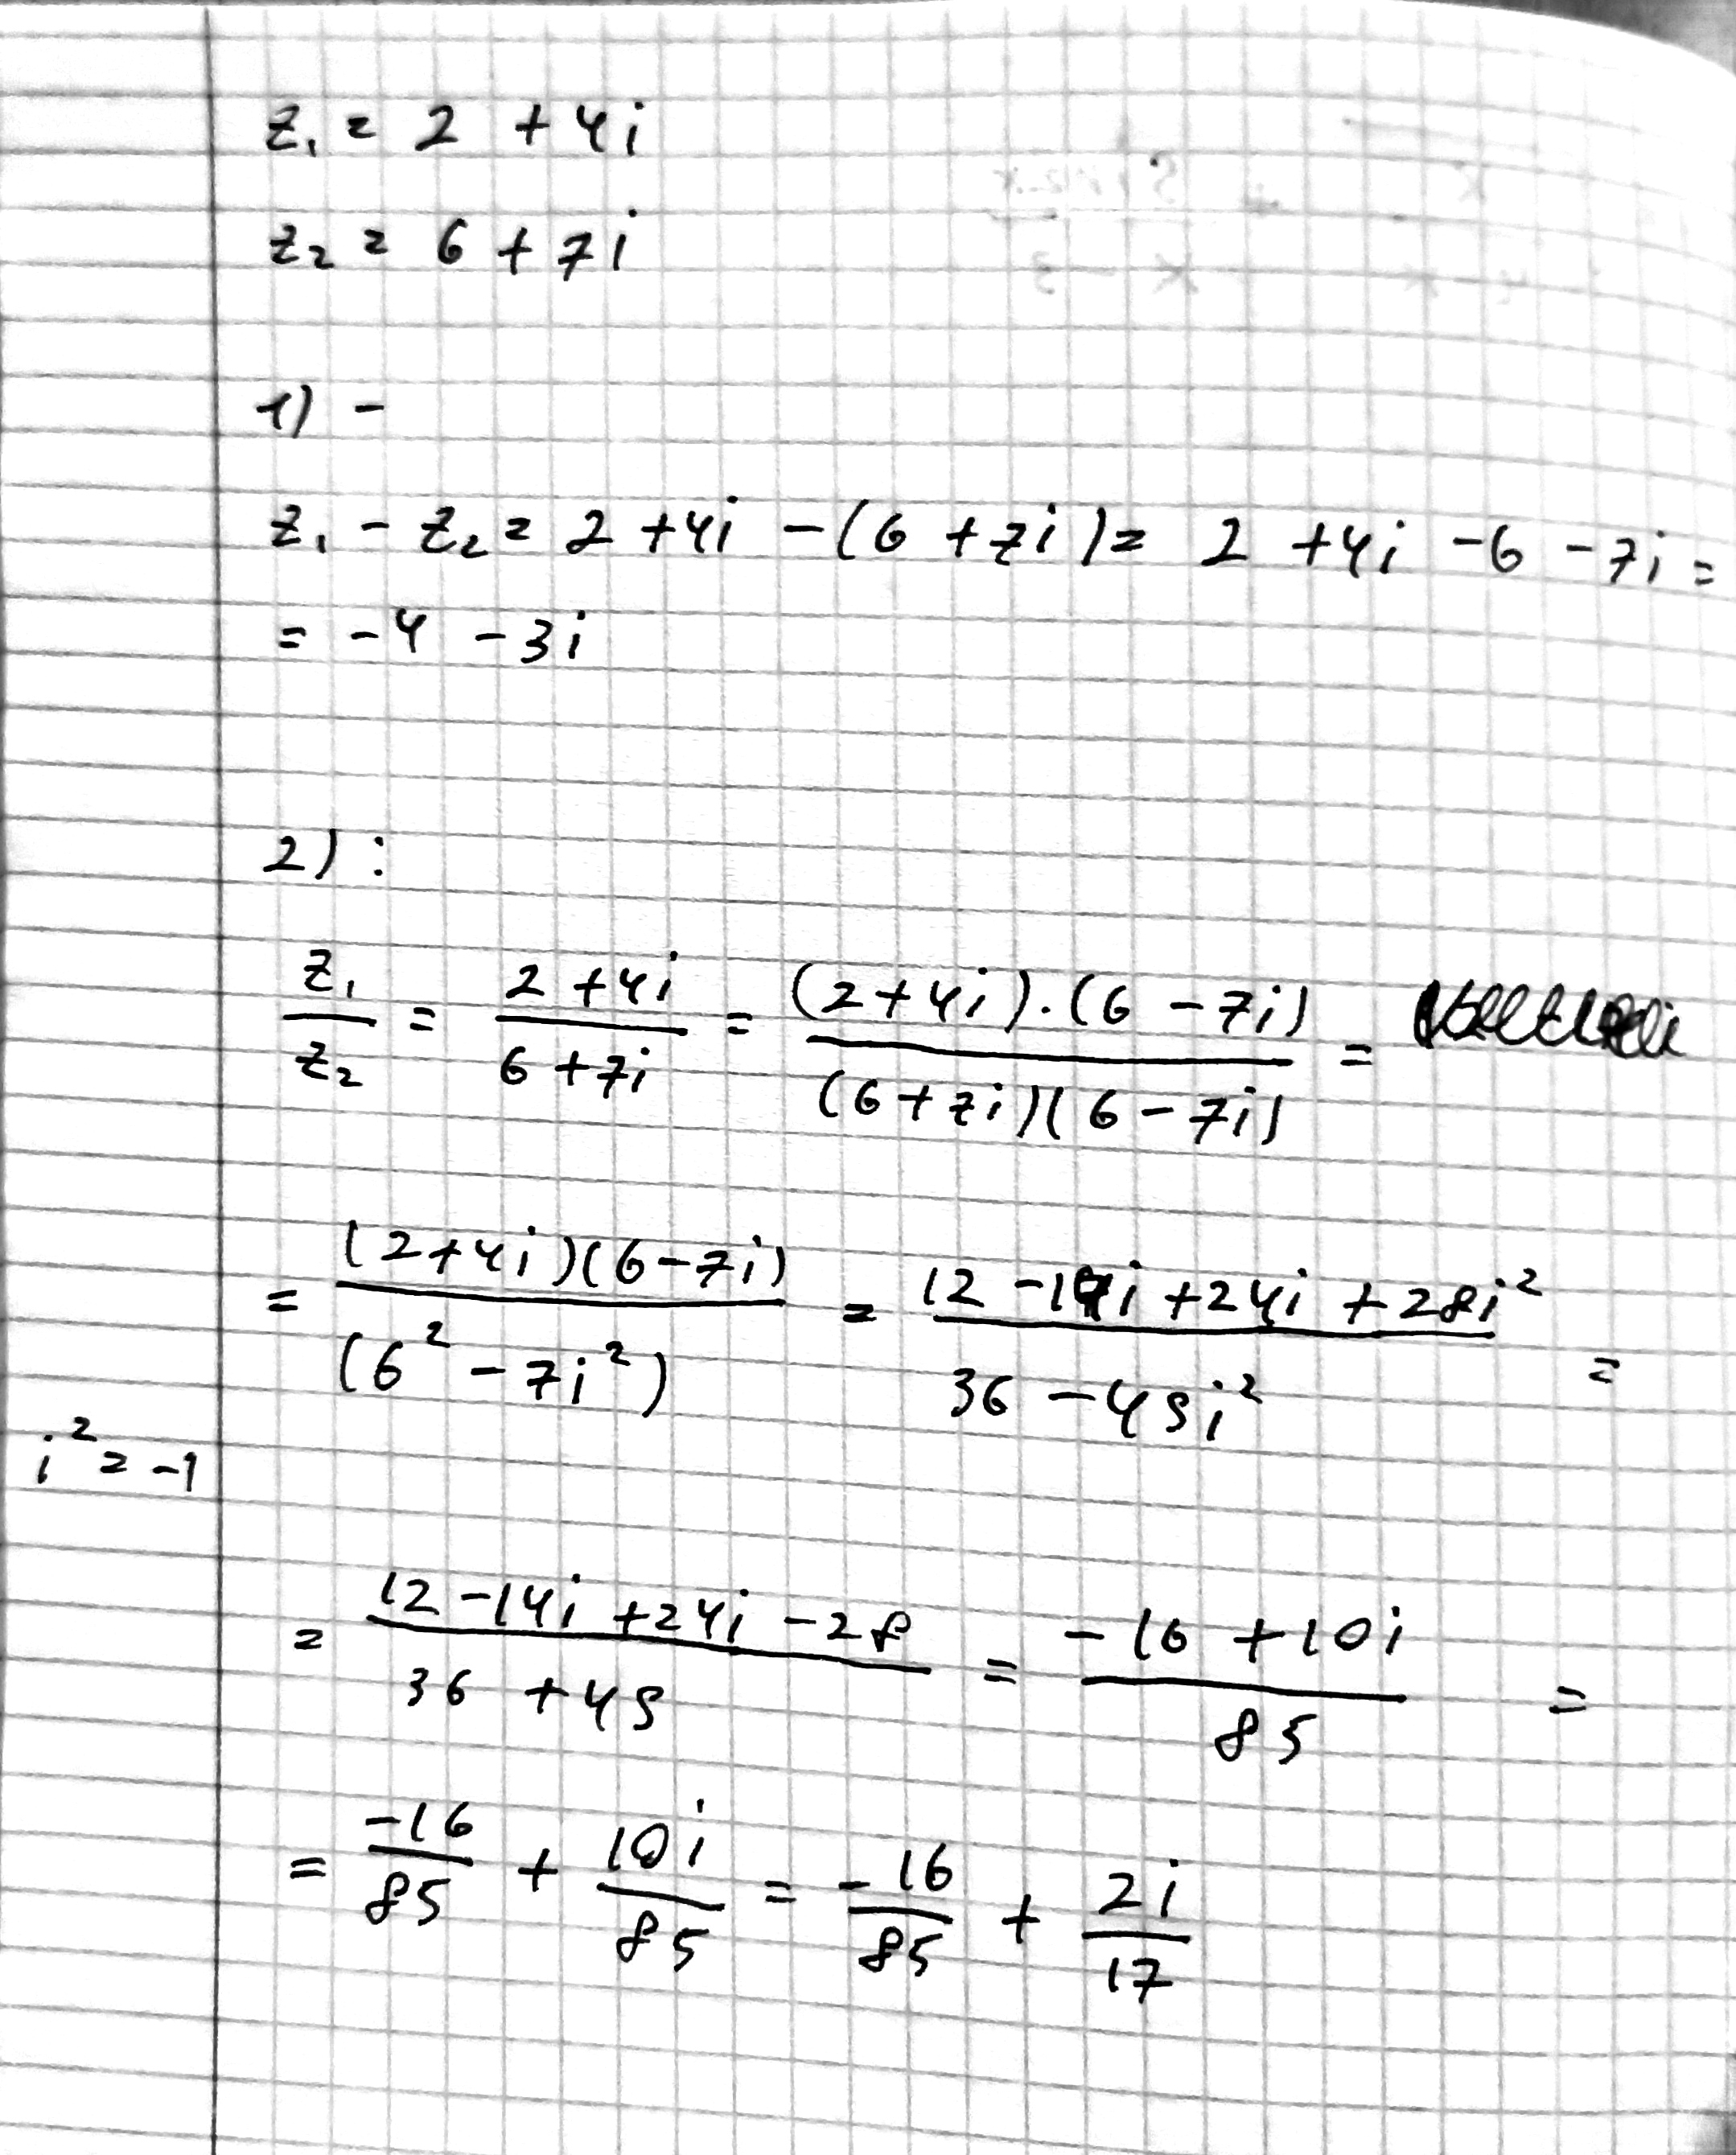 z₁ = 2 + 4i
z₂ = 6 + 7i
1) -
z₁ - z₂ = 2 + 4i - (6 + 7i) = 2 + 4i - 6 - 7i =
= -4 - 3i
2) :
z₁/z₂ = (2 + 4i)/(6 + 7i) = ((2 + 4i)·(6 - 7i))/((6 + 7i)(6 - 7i)) =
= ((2 + 4i)(6 - 7i))/(6² - 7i²) = (12 - 14i + 24i + 28i²)/(36 - 49i²) =
i² = -1
= (12 - 14i + 24i - 28)/(36 + 49) = (-16 + 10i)/85 =
= -16/85 + 10i/85 = -16/85 + 2i/17